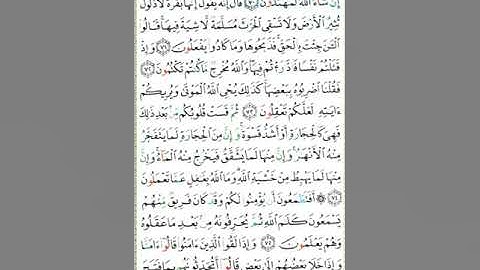 إِن شَاءَ ٱللَّهُ لَمُهْتَدُونَ ٧٠ قَالَ إِنَّهُ يَقُولُ إِنَّهَا بَقَرَةٌ لَّا ذَلُولٌ
تُثِيرُ ٱلْأَرْضَ وَلَا تَسْقِى ٱلْحَرْثَ مُسَلَّمَةٌ لَّا شِيَةَ فِيهَا قَالُوا
ٱلْـَٰٔنَ جِئْتَ بِٱلْحَقِّ فَذَبَحُوهَا وَمَا كَادُوا يَفْعَلُونَ ٧١ وَإِذْ
قَتَلْتُمْ نَفْسًا فَٱدَّٰرَْٰٔتُمْ فِيهَا وَٱللَّهُ مُخْرِجٌ مَّا كُنتُمْ تَكْتُمُونَ ٧٢
فَقُلْنَا ٱضْرِبُوهُ بِبَعْضِهَا كَذَٰلِكَ يُحْىِ ٱللَّهُ ٱلْمَوْتَىٰ وَيُرِيكُمْ
ءَايَٰتِهِ لَعَلَّكُمْ تَعْقِلُونَ ٧٣ ثُمَّ قَسَتْ قُلُوبُكُم مِّنۢ بَعْدِ ذَٰلِكَ
فَهِىَ كَٱلْحِجَارَةِ أَوْ أَشَدُّ قَسْوَةً وَإِنَّ مِنَ ٱلْحِجَارَةِ لَمَا يَتَفَجَّرُ
مِنْهُ ٱلْأَنْهَٰرُ وَإِنَّ مِنْهَا لَمَا يَشَّقَّقُ فَيَخْرُجُ مِنْهُ ٱلْمَاءُ وَإِنَّ
مِنْهَا لَمَا يَهْبِطُ مِنْ خَشْيَةِ ٱللَّهِ وَمَا ٱللَّهُ بِغَٰفِلٍ عَمَّا تَعْمَلُونَ
٧٤ ۞ أَفَتَطْمَعُونَ أَن يُؤْمِنُوا لَكُمْ وَقَدْ كَانَ فَرِيقٌ مِّنْهُمْ
يَسْمَعُونَ كَلَٰمَ ٱللَّهِ ثُمَّ يُحَرِّفُونَهُ مِنۢ بَعْدِ مَا عَقَلُوهُ
وَهُمْ يَعْلَمُونَ ٧٥ وَإِذَا لَقُوا ٱلَّذِينَ ءَامَنُوا قَالُوا ءَامَنَّا
وَإِذَا خَلَا بَعْضُهُمْ إِلَىٰ بَعْضٍ قَالُوا أَتُحَدِّثُونَهُم بِمَا فَتَحَ